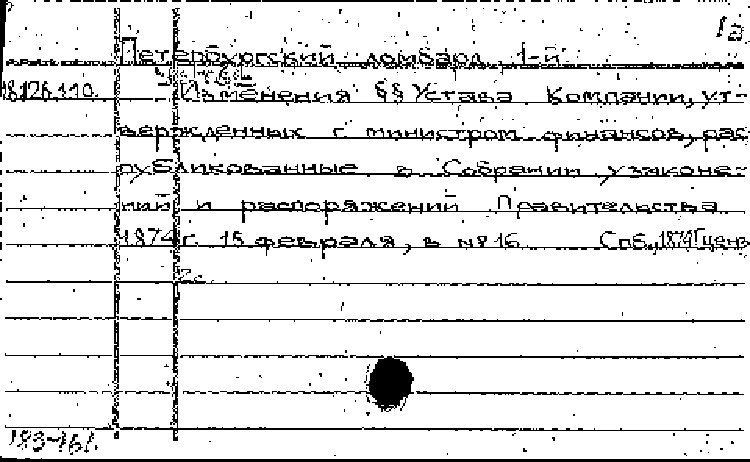 1а
Петербургский ломбард 1-й
18.126.110. Изменения §§ Устава Компании, ут-
вержденных г. министром финансов, рас
публикованные в Собрании узаконе-
ний и распоряжений Правительства
1874 г. 15 февраля, в № 16 Спб., 1874 [ценз
2с.